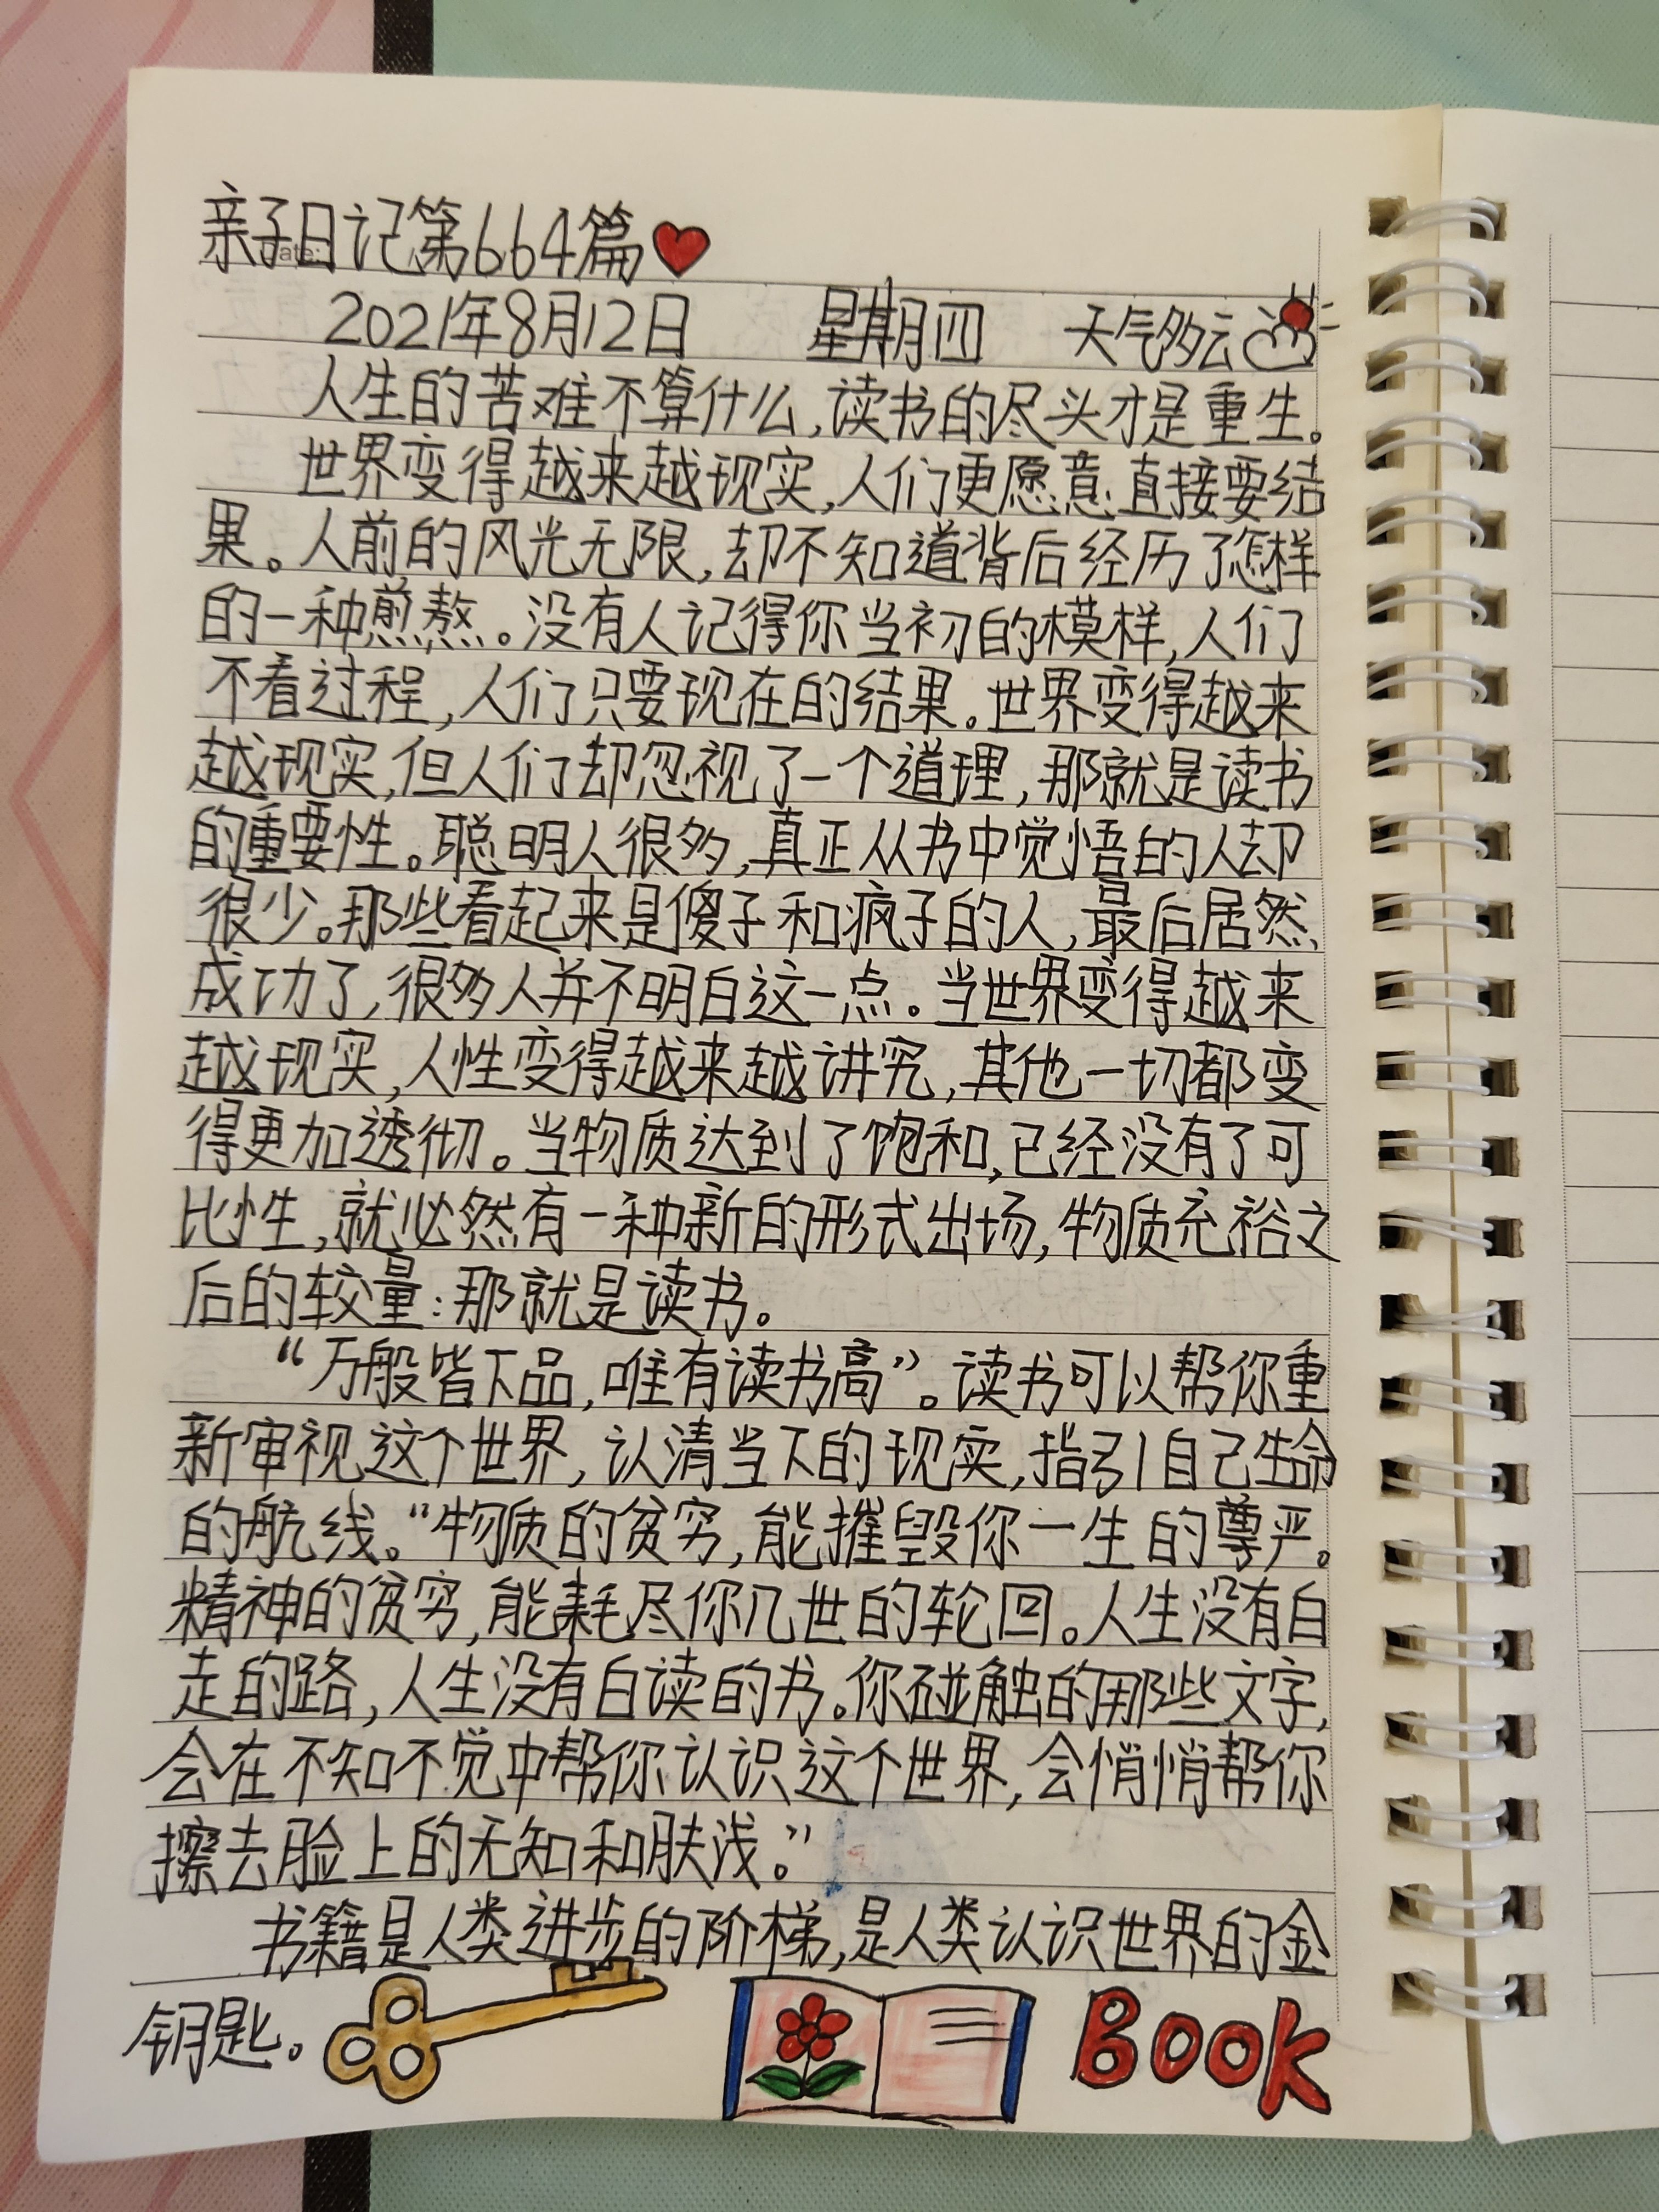 亲子日记第664篇
2021年8月12日 星期四 天气多云
人生的苦难不算什么,读书的尽头才是重生。
世界变得越来越现实,人们更愿意直接要结
果。人前的风光无限,却不知道背后经历了怎样
的一种煎熬。没有人记得你当初的模样,人们
不看过程,人们只要现在的结果。世界变得越来
越现实,但人们却忽视了一个道理,那就是读书
的重要性。聪明人很多,真正从书中觉悟的人却
很少。那些看起来是傻子和疯子的人,最后居然
成功了,很多人并不明白这一点。当世界变得越来
越现实,人性变得越来越讲究,其他一切都变
得更加透彻。当物质达到了饱和,已经没有了可
比性,就必然有一种新的形式出场,物质充裕之
后的较量:那就是读书。
“万般皆下品,唯有读书高”。读书可以帮你重
新审视这个世界,认清当下的现实,指引自己生命
的航线。“物质的贫穷,能摧毁你一生的尊严。
精神的贫穷,能耗尽你几世的轮回。人生没有白
走的路,人生没有白读的书。你碰触的那些文字,
会在不知不觉中帮你认识这个世界,会悄悄帮你
擦去脸上的无知和肤浅。”
书籍是人类进步的阶梯,是人类认识世界的金
钥匙。
BOOK